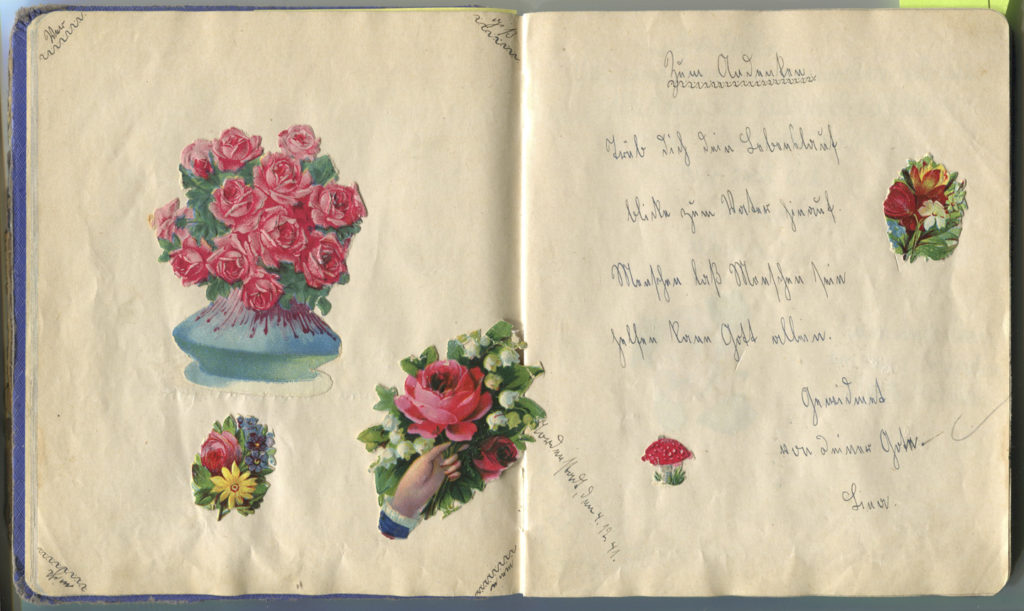 Zum Andenken
Trüb dich dein Lebenslauf
blicke zum Vater hinauf.
Menschen laß Menschen sein
helfen kann Gott allein.
Gewidmet
von deiner Gote
Lina.
den 4.12.41.